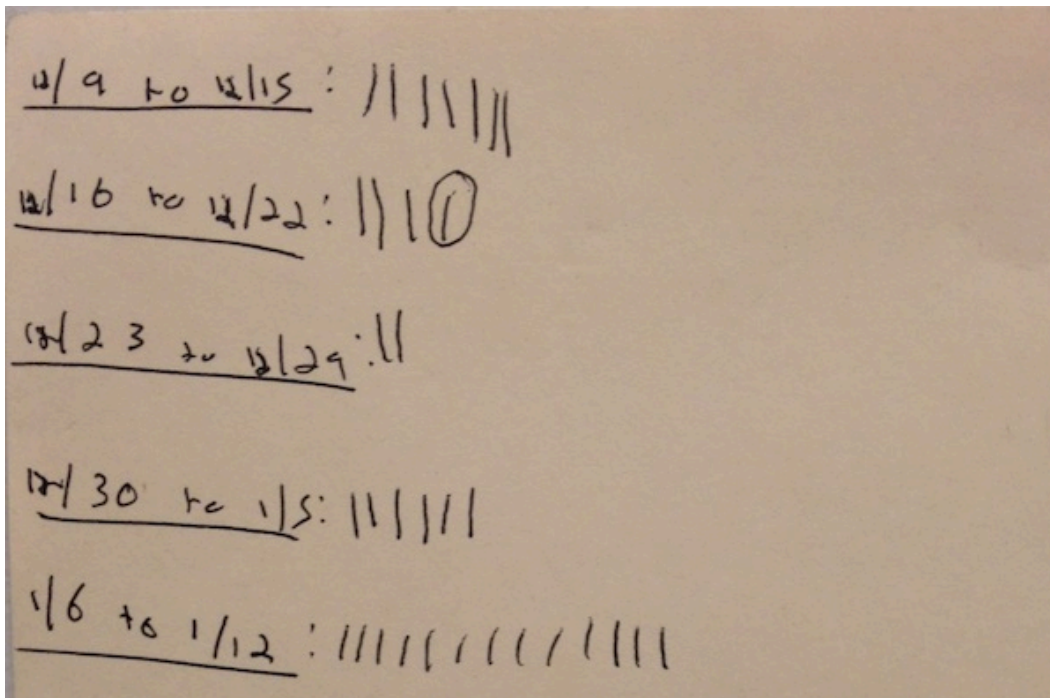 12/9 to 12/15: ||||||||
12/16 to 12/22: ||||
12/23 to 12/29: ||
12/30 to 1/5: ||||||
1/6 to 1/12: ||||||||||||||